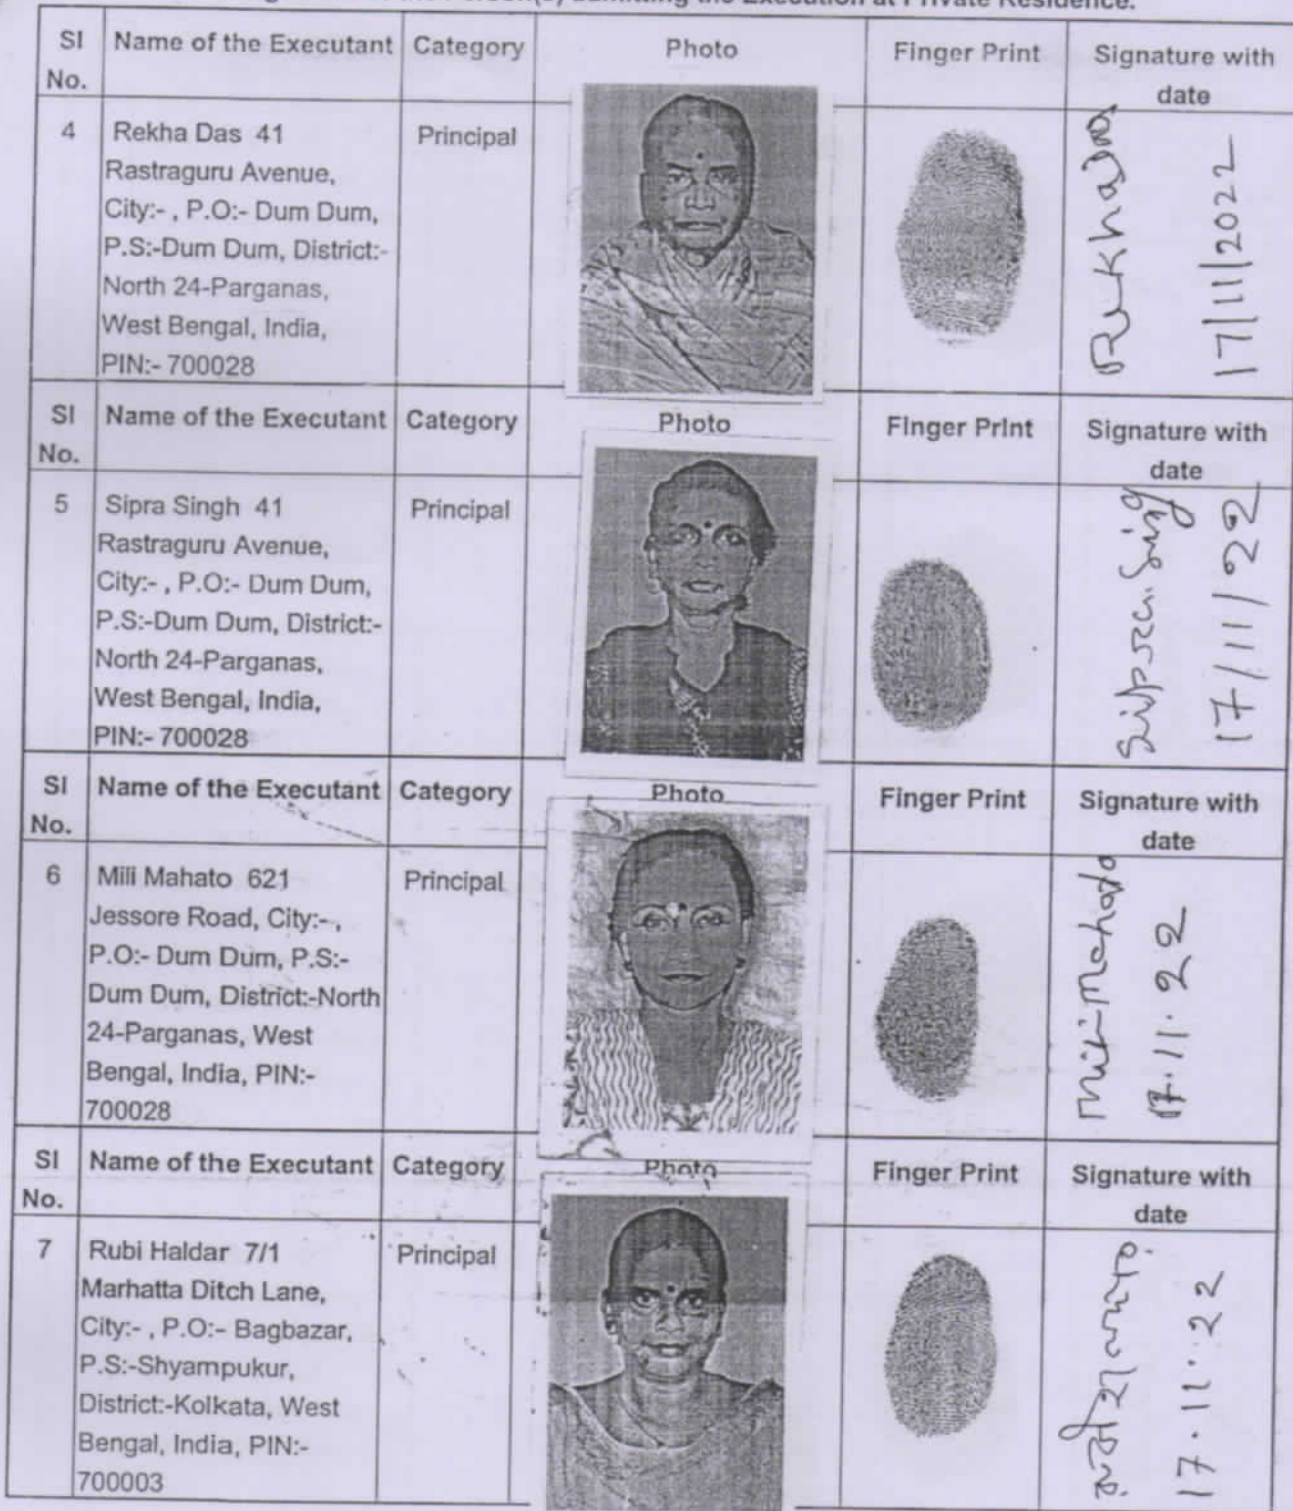 the Execution at Private Residence.
Sl No. Name of the Executant Category Photo Finger Print Signature with date
4 Rekha Das 41 Principal
Rastraguru Avenue,
City:- , P.O:- Dum Dum,
P.S:-Dum Dum, District:-
North 24-Parganas,
West Bengal, India,
PIN:- 700028
Rekha Das
17/11/2022
Sl No. Name of the Executant Category Photo Finger Print Signature with date
5 Sipra Singh 41 Principal
Rastraguru Avenue,
City:- , P.O:- Dum Dum,
P.S:-Dum Dum, District:-
North 24-Parganas,
West Bengal, India,
PIN:- 700028
17/11/22
Sl No. Name of the Executant Category Photo Finger Print Signature with date
6 Mili Mahato 621 Principal
Jessore Road, City:-,
P.O:- Dum Dum, P.S:-
Dum Dum, District:-North
24-Parganas, West
Bengal, India, PIN:-
700028
Mili Mahato
17.11.22
Sl No. Name of the Executant Category Photo Finger Print Signature with date
7 Rubi Haldar 7/1 Principal
Marhatta Ditch Lane,
City:- , P.O:- Bagbazar,
P.S:-Shyampukur,
District:-Kolkata, West
Bengal, India, PIN:-
700003
17.11.22